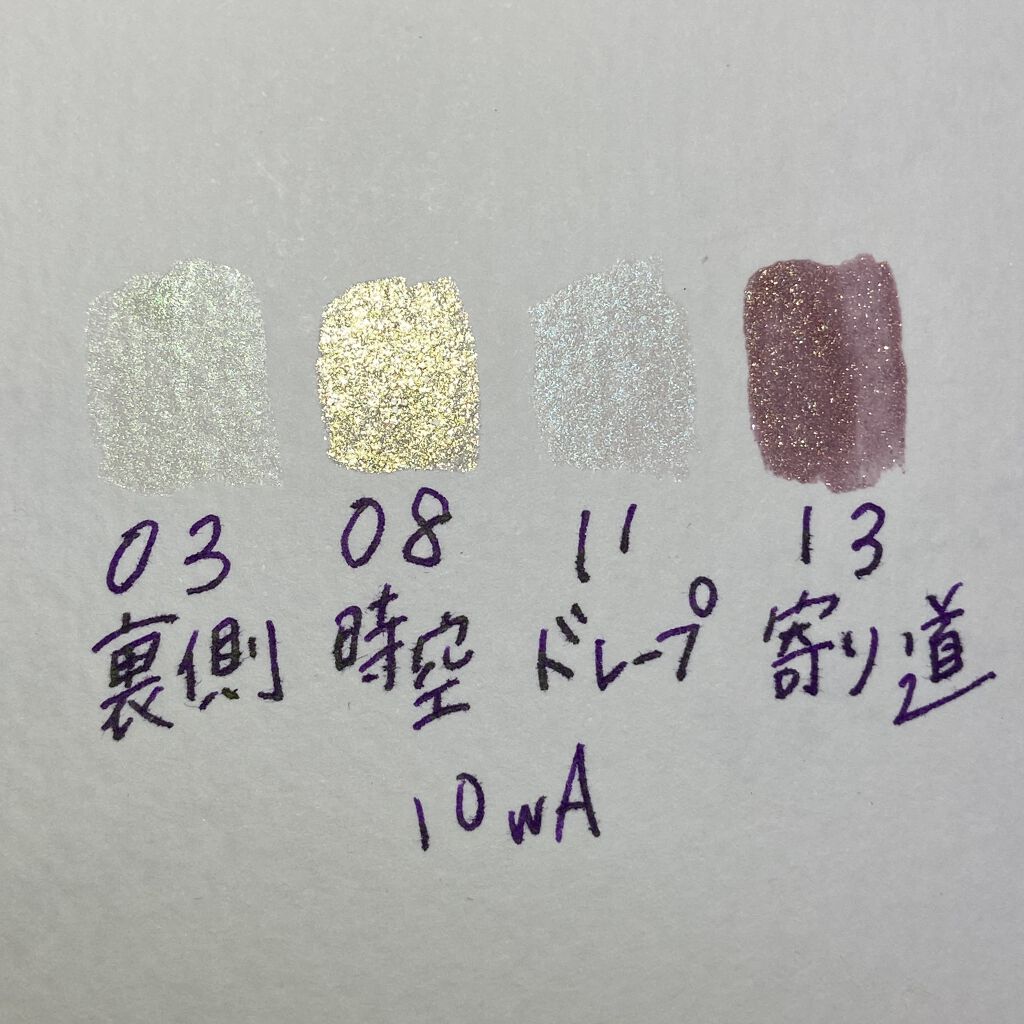 03 08 11 13
裏側 時空 ドレープ 寄り道
10wA